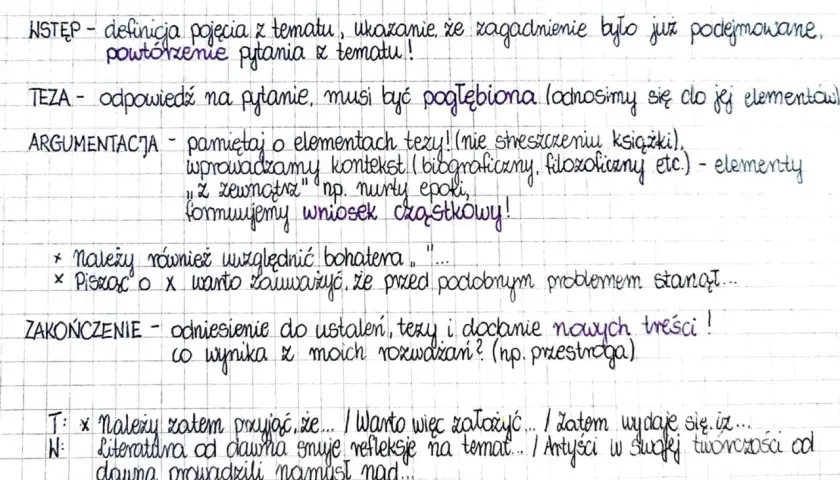 WSTĘP - definicja pojęcia z tematu, ukazanie, że zagadnienie było już podejmowane,
powtórzenie pytania z tematu!
TEZA - odpowiedź na pytanie, musi być pogłębiona (odnosimy się do jej elementów)
ARGUMENTACJA - pamiętaj o elementach tezy! (nie streszczeniu książki),
wprowadzamy kontekst (biograficzny, filozoficzny etc.) - elementy
„z zewnątrz" np. nurty epoki,
formuujemy wniosek cząstkowy!
x Należy również uwzględnić bohatera „ "...
x Pisząc o x warto zauważyć, że przed podobnym problemem stanął...
ZAKOŃCZENIE - odniesienie do ustaleń, tezy i dodanie nowych treści!
co wynika z moich rozważań? (np. przestroga)
T: x Należy zatem przyjąć, że... / Warto więc założyć... / Zatem wydaje się, iż...
W: Literatura od dawna snuje refleksje na temat... / Artyści w swojej twórczości od
dawna prowadzili namysł nad...